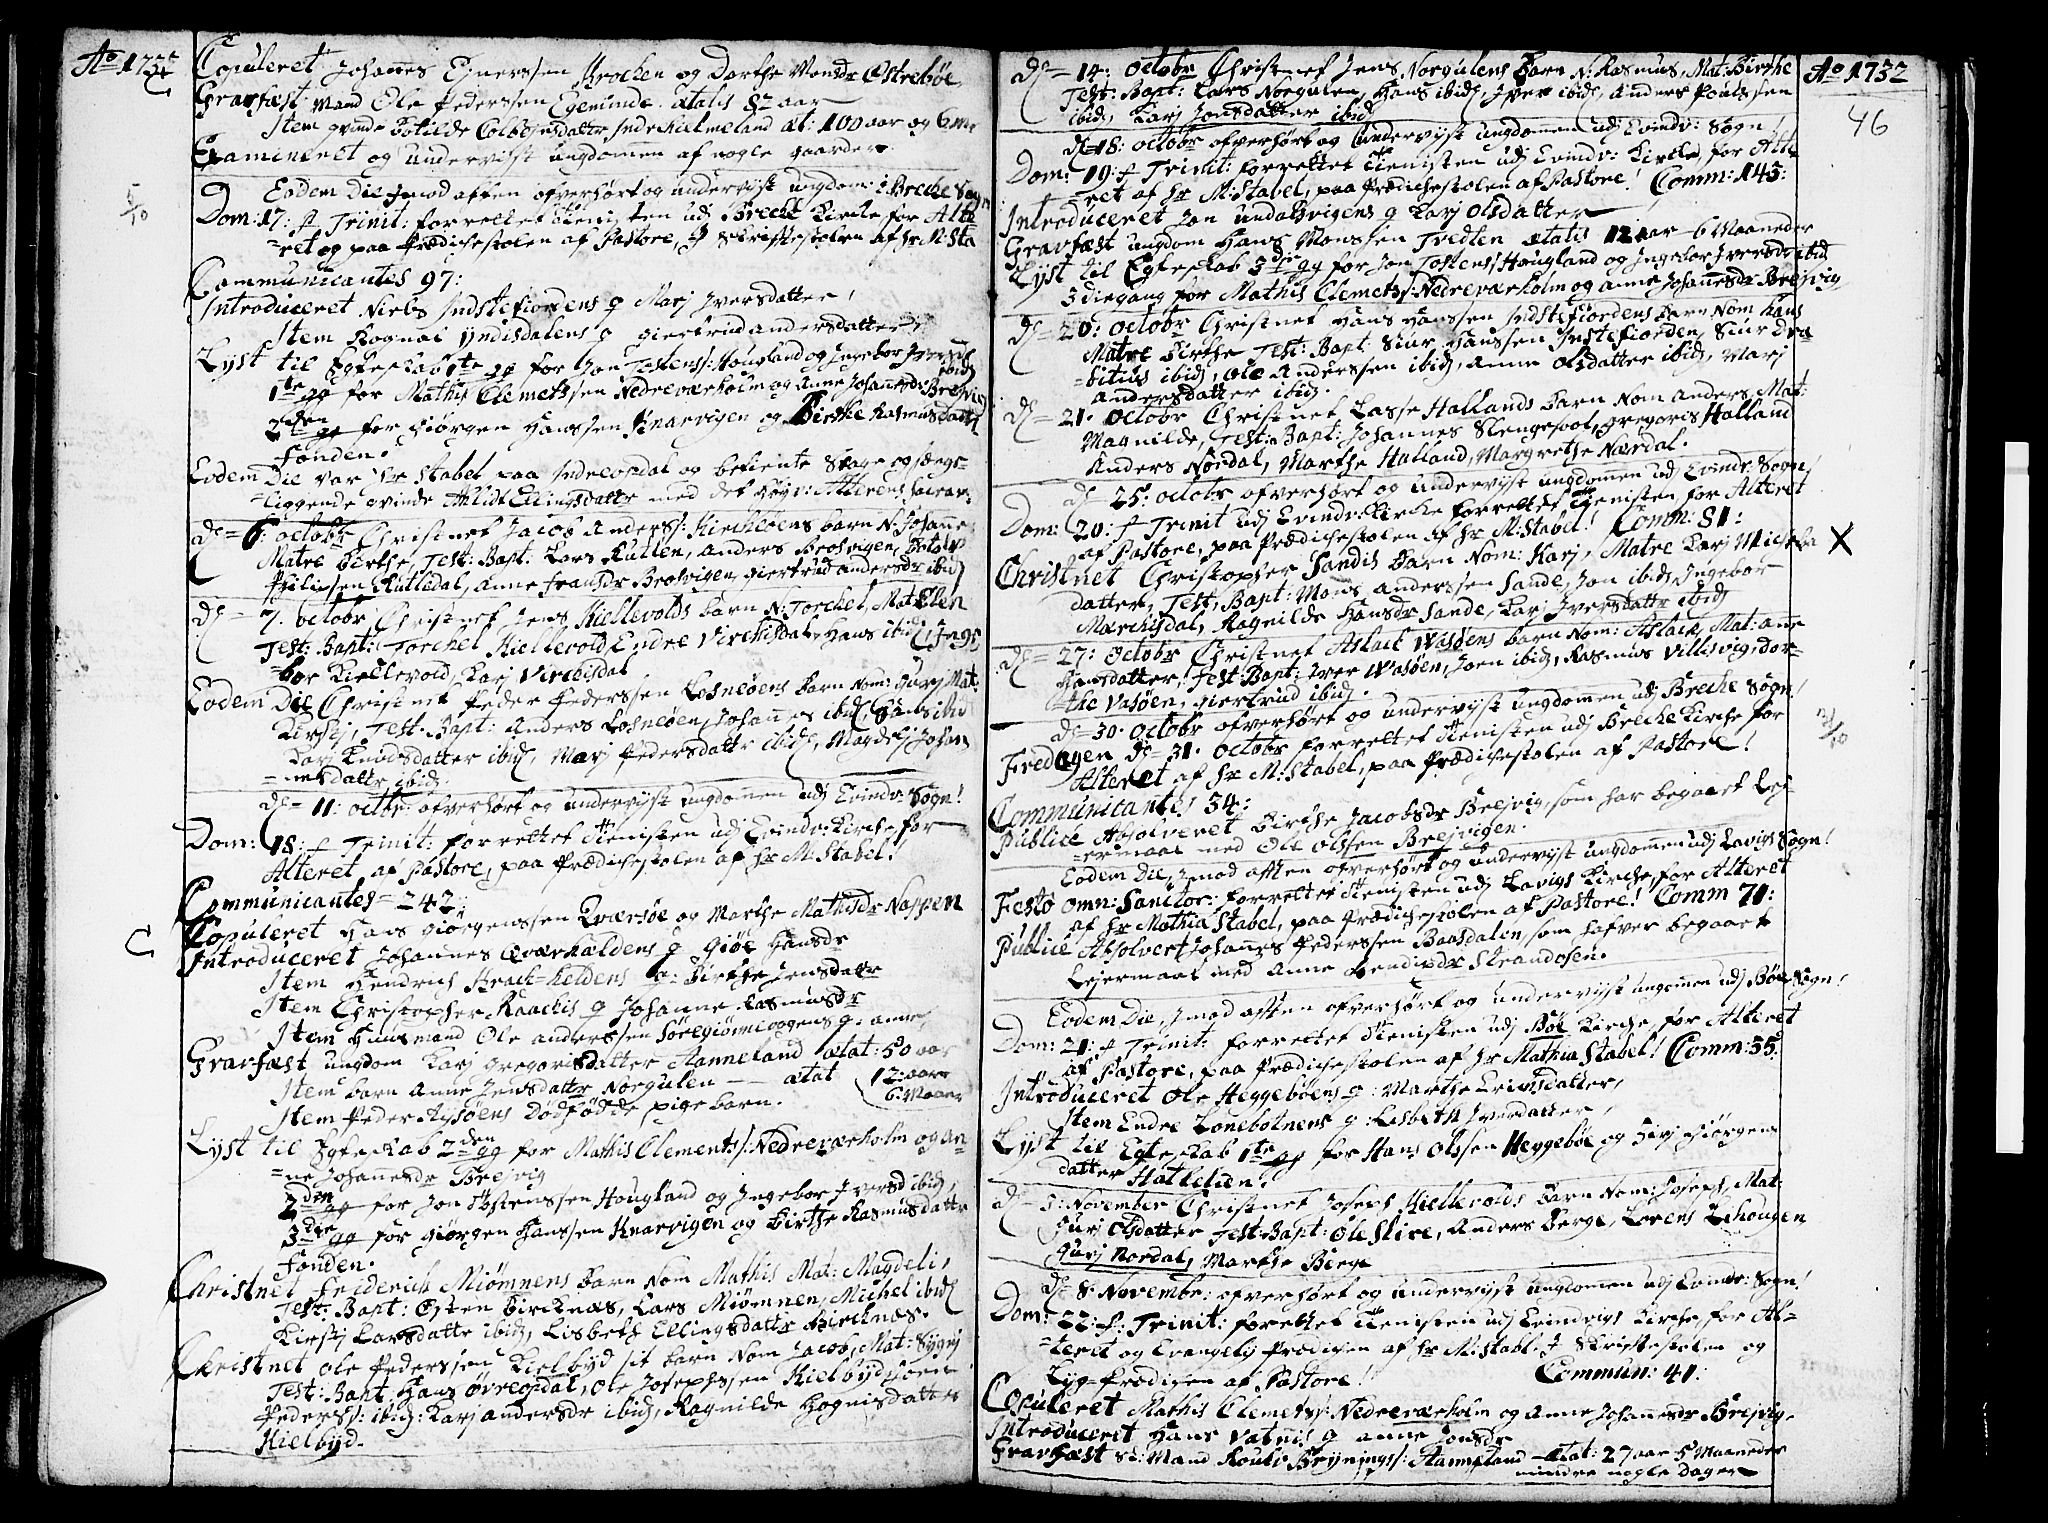 Ao 1732
Copuleret Johannes Ejnerssen Brochen og Dorthe Monsdr Østrebøe
Gravfæst Mand Ole Pederssen Egemunde. ætatis 82 aar
Item qvinde Botilde Colbejnsdattr Indre Hielmeland æt: 100 aar og 6 m:
Examineret og underviist ungdommen af nogle gaarder
Eodem Die Jmod aften ofverhørt og underviist ungdom: i Breche Sogn
5/10
Dom: 17: p Trinit: forrettet tienisten udj Breche Kirche for Alte
=ret og paa Prædichestolen af Pastore, J Skriftestolen af hr M: Sta
Communicantes 97:
Introduceret Niels Indstefiordens q Marj Iversdatter,
Item Ragnal Yndisdalens q giertrud andersdatter,
Lyst til Egteskab 1te gg for Jon Tostens/: Hougland og Ingebor Iversdr ibid
1te gg for Mathis Clemetssen Nedreværholm og Anne Johannesdr Brejvig
2den gg for Giørgen Hanssen Knarvigen og Birthe Rasmusdattr
Fonden.
Eodem Die var hr Stabel paa Indreopdal og betiente Svage og senge
=liggende qvinde Ahlid Ellingsdattr med det høyv: Alterens Sacram:
d= 6: octobr Christnet Jacob Anderss: Kirchebøens barn N: Johanne
Matre Birthe, Test: Bapt: Lars Rutlen, anders Brosvigen, Botolv
Philipsen Rutledal, anne fransdr Brosvigen, giertrud andersdr ibid
d= 7. octobr Christnet Jens Kiellevolds barn N: Torchel, Mat: Elen
Test: Bapt: Torchel Kiellevold, Endre Virchisdal, Hans ibid, Inge
=bor Kiellevold, Karj Virchisdal
Eodem Die Christnet Peder Pederssen Losneøens barn Nom: Gurj Mat:
Kirstj, Test: Bapt: Anders Losneøen, Johannes ibid, Hans ibid
Karj Knudsdatter ibid, Marj Pedersdattr ibid, Magdelj Johan
=nesdattr ibid.
d= 11: octbr: ofverhørt og underviist ungdommen udj Evindv: Sogn!
Dom: 18: p Trinit: forrettet tienisten udj Evindv: Kirche, for
Alteret af Pastore, paa Prædichestolen af hr M: Stabel!
Communicantes = 242:
C
Copuleret Hans Giørgenssen Qværsøe og Marthe Mathisdr Nappen
Introduceret Johannes Qværhældens q Giøe Hansdr
Item Hendrich Brech=heldens q: Birthe Jensdattr
Item Christopher Raachis q Johanne Rasmusdr
Item Huusmand Ole anderssen Søregiønneoggens q: anne,
Gravfæst ungdom Karj gregorisdatter Hanneland ætat: 50 aar
Item barn Anne Jensdattr Norgulen — ætat 12: aar
6: Maan
Item Peder Aysøens dødfødde pigebarn.
Lyst til Egteskab 2den gg for Mathis Clementss/: Nedreværholm og an
=ne Johannesdr Brejvig
2den gg for Jon Tostenssen Hougland og Ingebor Iversd ibid,
3die gg for Giørgen Hanssen Knarvigen og Birthe Rasmusdattr
Fonden.
Christnet Friderich Miømnens barn Nom Mathis Mat: Magdeli,
Test: Bapt: Østen Bircknæs, Lars Miømnen, Michel ibid
Kirstj Larsdatte ibid, Lisbeth Ellingsdattr Bircknæs.
Christnet Ole Pederssen Kielbyd sit barn Nom Jacob, Mat: Sygnj
Test: Bapt: Hans Øvreopdal, Ole Josephssen Kielbyd, Joen
Pederss/: ibid: Karj andersdr ibid, Ragnilde Hognisdatter
Kielbyd.
Ao 1732
46
d= 14: octobr Christnet Jens Norgulens Barn N: Rasmus, Mat: Birthe
Test: Bapt: Lars Norgulen, Hans ibid, Iver ibid, Anders Poulssen
ibid, Karj Jonsdatter ibid
d= 18: octobr ofverhørt og underviist ungdommen udj Evindv: Sogn!
Dom: 19: p Trinit: forrettet tienisten udj Evindv: Kirche, for Alte
=ret af hr M: Stabel, paa Prædichestolen af Pastore! Comm: 145:
Introduceret Jon Undalsvigens q Karj Olsdatter
Gravfæst ungdom Hans Monssen Tvedten ætatis 12 aar 6 Maaneder
Lyst til Egteskab 3die gg for Jon Tostens/: Hougland og Ingebor Iversdr ibid
3die gang for Mathis Clemets/: Nedreværholm og anne Johannesdr Brejvig
d= 20: octobr Christnet Hans Hanssen Indstefiordens Barn Nom Hans
Matre Birthe Test: Bapt Siur Hanssen Instefiorden, Siur Dra
=bitius ibid, Ole Anderssen ibid, Anne Olsdatter ibid, Marj
andersdatter ibid.
d= 21. octobr Christnet Lasse Hallands barn Nom anders, Mat:
Magnilde, Test: Bapt: Johannes Slengesol, gregoris Halland
Anders Nordal, Marthe Halland, Margrethe Nærdal.
d= 25: octobr ofverhørt og underviist ungdommen udj Evindv: Sogn,
Dom: 20: p Trinit udj Evindv: Kirche forrettet tienisten for Alteret
af Pastore, paa Prædichestolen af hr M: Stabel! Comm: 81:
Christnet Christopher Sandis Barn Nom: Karj, Matre Karj Michels X
datter, Test, Bapt: Mons anderssen Sande, Jon ibid, Ingebor
Mærchisdal, Ragnilde Hansdr Sande, Karj Iversdattr ibid
d= 27: octobr Christnet Aslach Wasøens barn Nom: Aslack, Mat: ane
Hansdatter, Test: Bapt: Iver Wasøen, Joen ibid, Rasmus Villisvig, Dor-
the Vasøen, giertrud ibid.
d= 30: octobr ofverhørt og underviist ungdommen udj Breche Sogn!
31/10
Fredagen d= 31. octobr forrettet tienisten udj Breche Kirche for
Alteret af hr M: Stabel, paa Prædichestolen af Pastore!
Communicantes 54:
Publice Absolveret Birthe Jacobsdr Brejvig, som har begaaet Lej
=ermaal med Ole Olssen Brejvigen.
Eodem Die, Jmod aften ofverhørt og underviist ungdommen udj Lavigs Sogn!
Festo omn: Sanctor: forrettet tienisten udj Lavigs Kirche, for Alteret
af hr Mathia Stabel, paa Prædichestolen af Pastore! Comm 71:
Publice Absolvert Johannes Pederssen Baasdalen, som hafver begaaet
Lejermaal med Anne Bendixdr Strandosen.
Eodem Die, Jmod aften ofverhørt og underviist ungdommen udj Bøe Sogn!
Dom: 21: p Trinit: forrettet tienisten udj Bøe Kirche, for Alteret
af Pastore, paa Prædichestolen af hr Mathia Stabel! Comm: 55:
Introduceret Ole Heggebøens q: Marthe Erichsdatter,
Item Endre Lonebotnens q: Lisbeth Iversdatter,
Lyst til Egteskab 1te gg for Hans Olssen Heggebøe og Sirj Giørgens
datter Hatlelien.
d= 5: November Christnet Joseph Kiellevolds Barn Nom: Joseph, Mat:
Gurj Olsdatter Test: Bapt: Ole Skire, Anders Berge, Lorens Lihougen
Gurj Nordal, Marthe Berge
d= 8: Novembr: ofverhørt og underviist ungdommen udj Evindv: Sogn!
Dom: 22: p: Trinit: forrettet tienisten udj Evindvigs Kirche, for Al-
=teret og Evangelij Prædiken af hr M: Stabl: J Skriftestolen og
Lyg=Prædiken af Pastore! Commun: 41:
Copuleret Mathis Clemetss/: Nedreværholm og Anne Johannesdr Brejvig.
Introduceret Hans Vatnis q anne Jonsdr
Gravfæst S: Mand Roulv Brynings/: Hanneland — ætat: 27 aar 5 Maaneder
mindre nogle dager